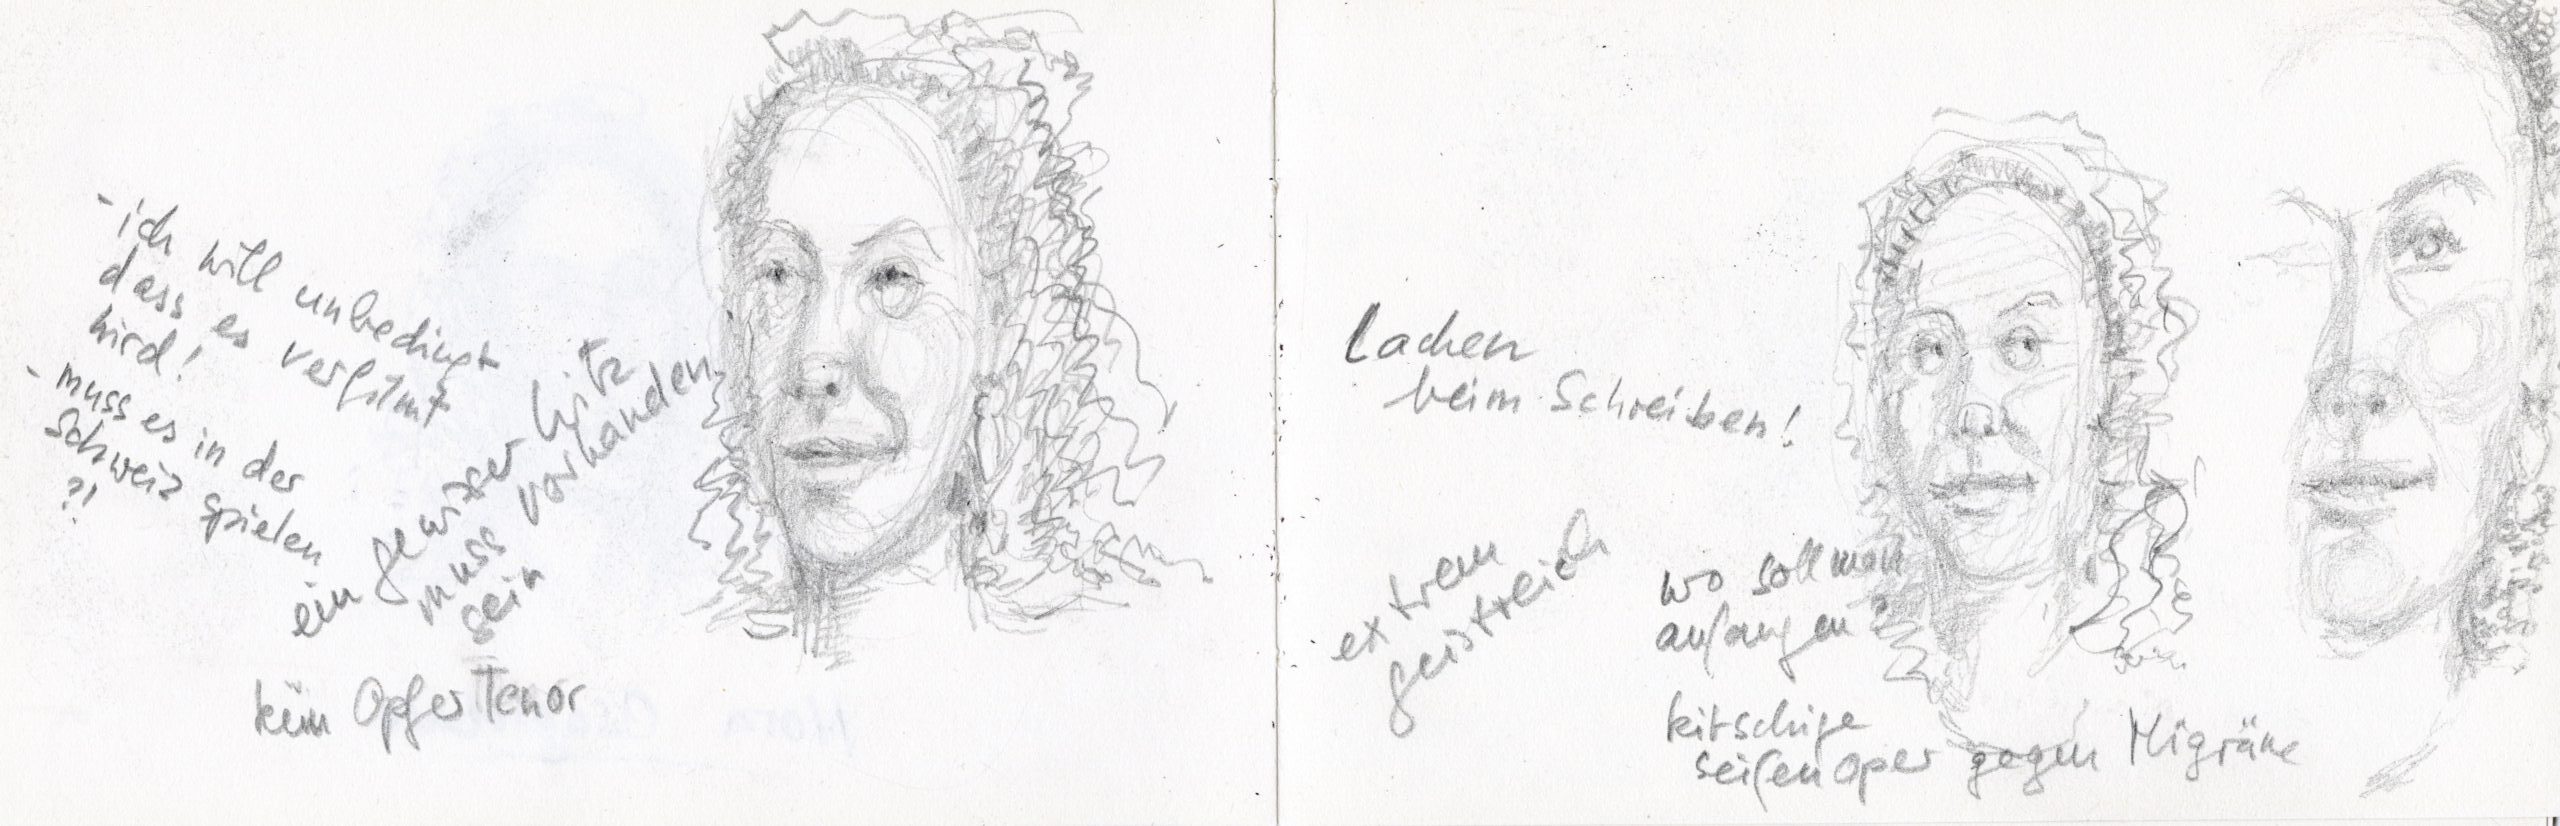 - ich will unbedingt
dass es verfilmt
wird!
- muss es in der
Schweiz spielen
?!
ein gewisser Witz
muss vorhanden
sein
kein Opfer Tenor
Lachen
beim Schreiben!
extrem
geistreich
wo soll man
anfangen?
kitschige
seifenoper gegen Migräne